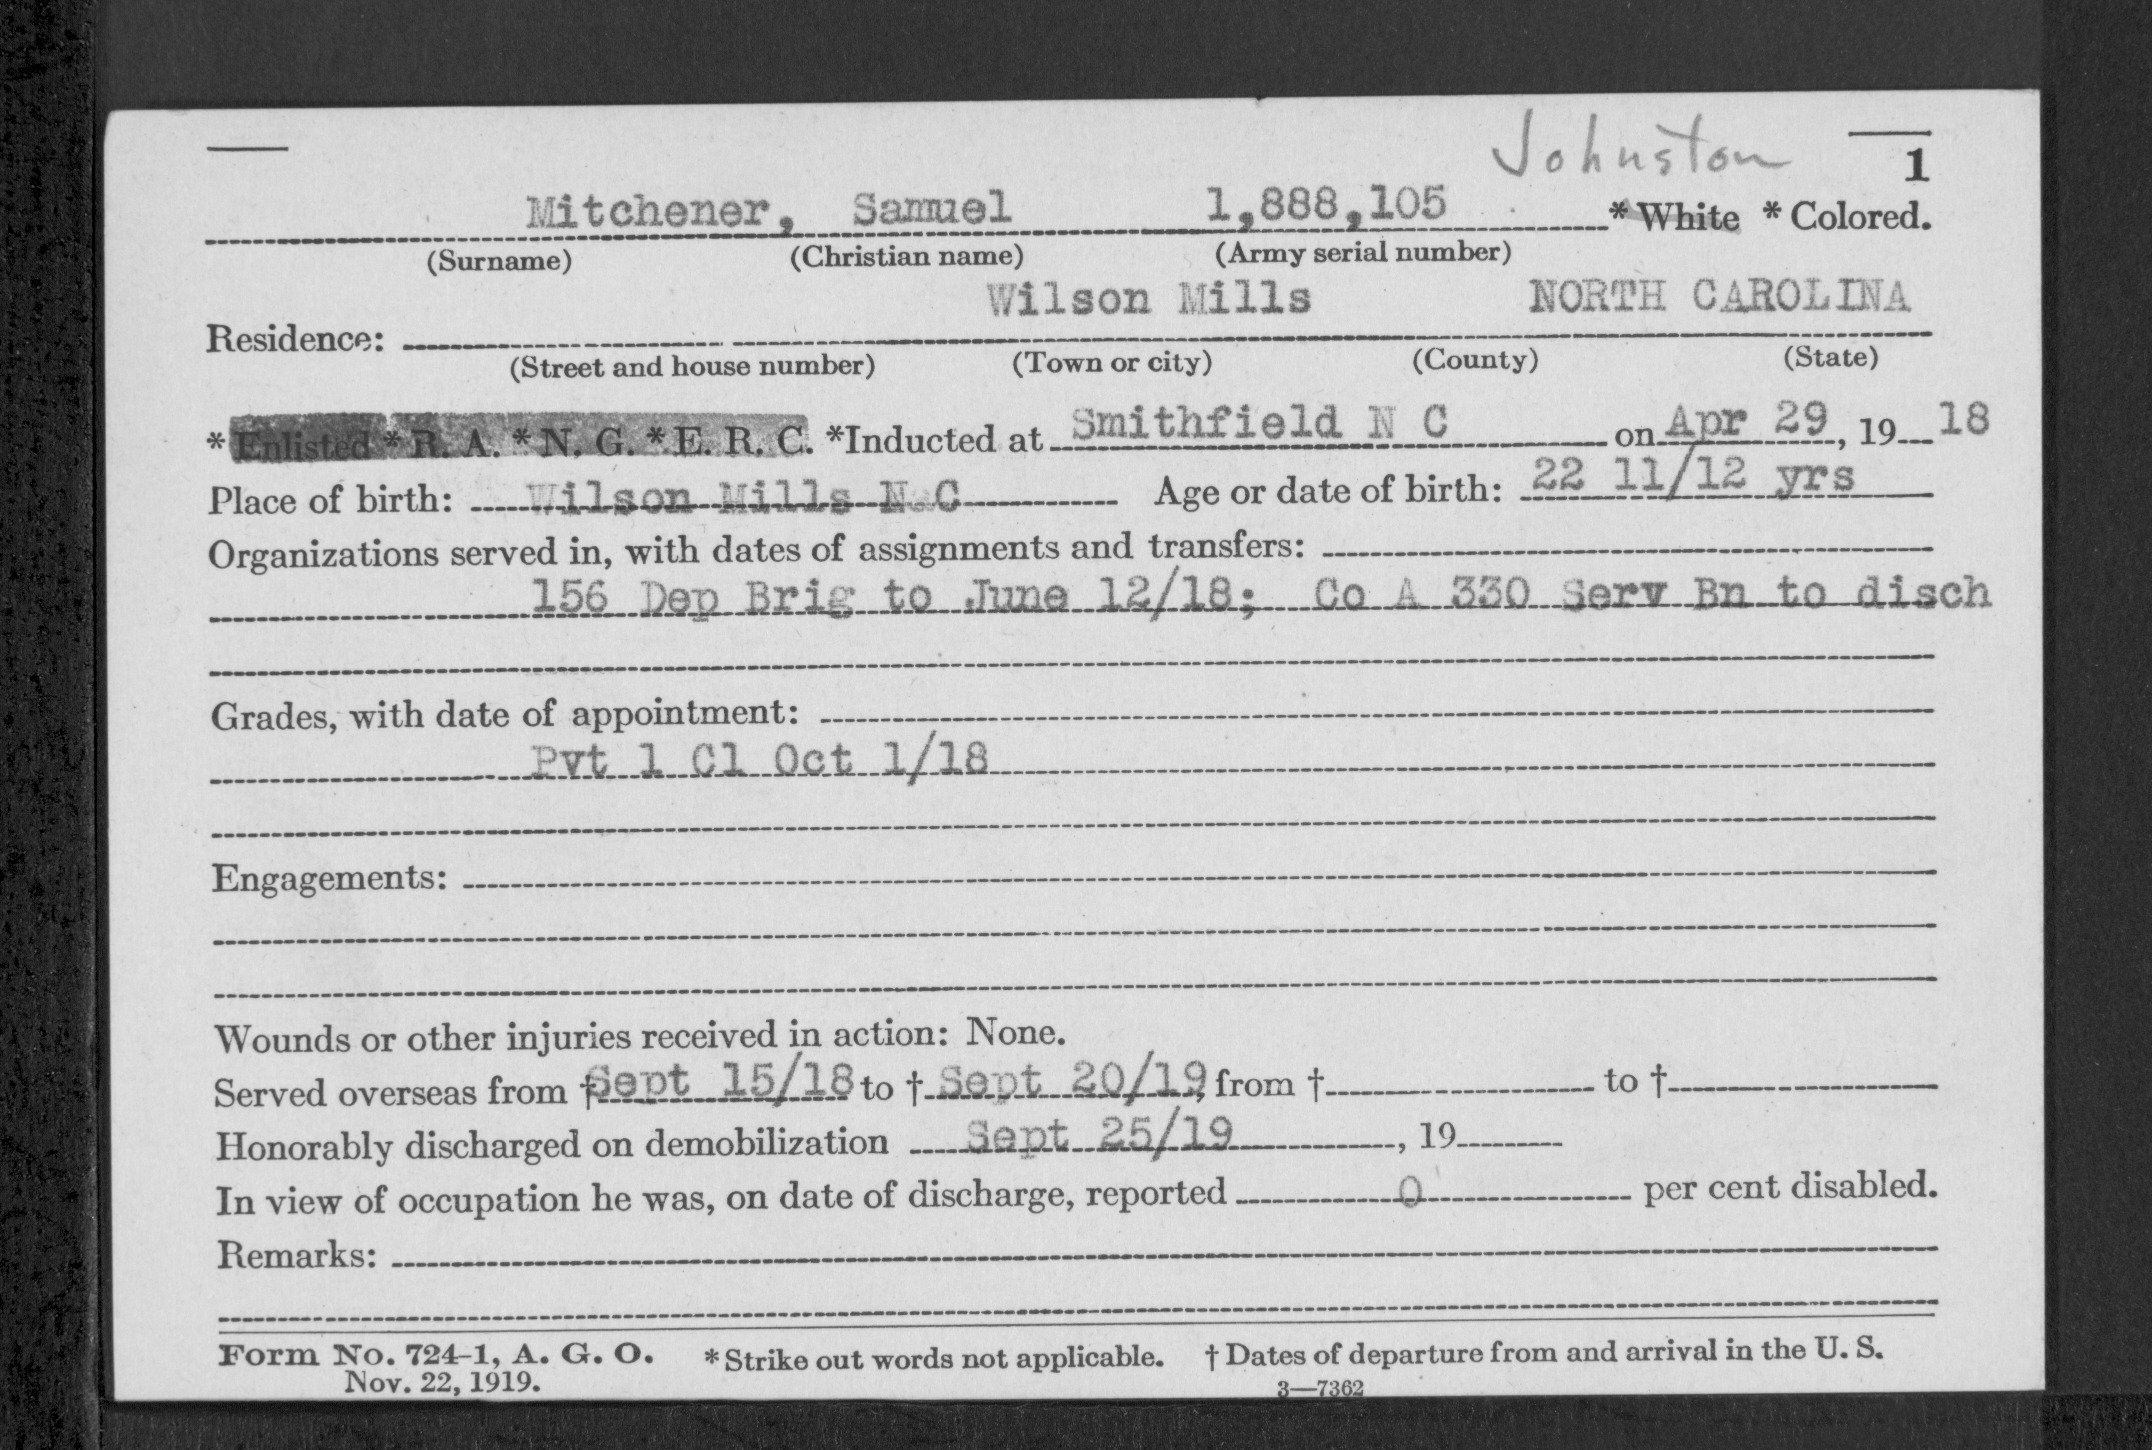 Johnston
1
Mitchener, Samuel 1,888,105 * White * Colored.
(Surname) (Christian name) (Army serial number)
Wilson Mills NORTH CAROLINA
Residence:
(Street and house number) (Town or city) (County) (State)
* Enlisted * R. A. * N. G. * E. R. C. *Inducted at Smithfield N C on Apr 29, 19 18
Place of birth: Wilson Mills N C Age or date of birth: 22 11/12 yrs
Organizations served in, with dates of assignments and transfers:
156 Dep Brig to June 12/18; Co A 330 Serv Bn to disch
Grades, with date of appointment:
Pvt 1 Cl Oct 1/18
Engagements:
Wounds or other injuries received in action: None.
Served overseas from † Sept 15/18 to † Sept 20/19, from † to †
Honorably discharged on demobilization Sept 25/19, 19
In view of occupation he was, on date of discharge, reported 0 per cent disabled.
Remarks:
Form No. 724-1, A. G. O. * Strike out words not applicable. † Dates of departure from and arrival in the U. S.
Nov. 22, 1919. 3—7362